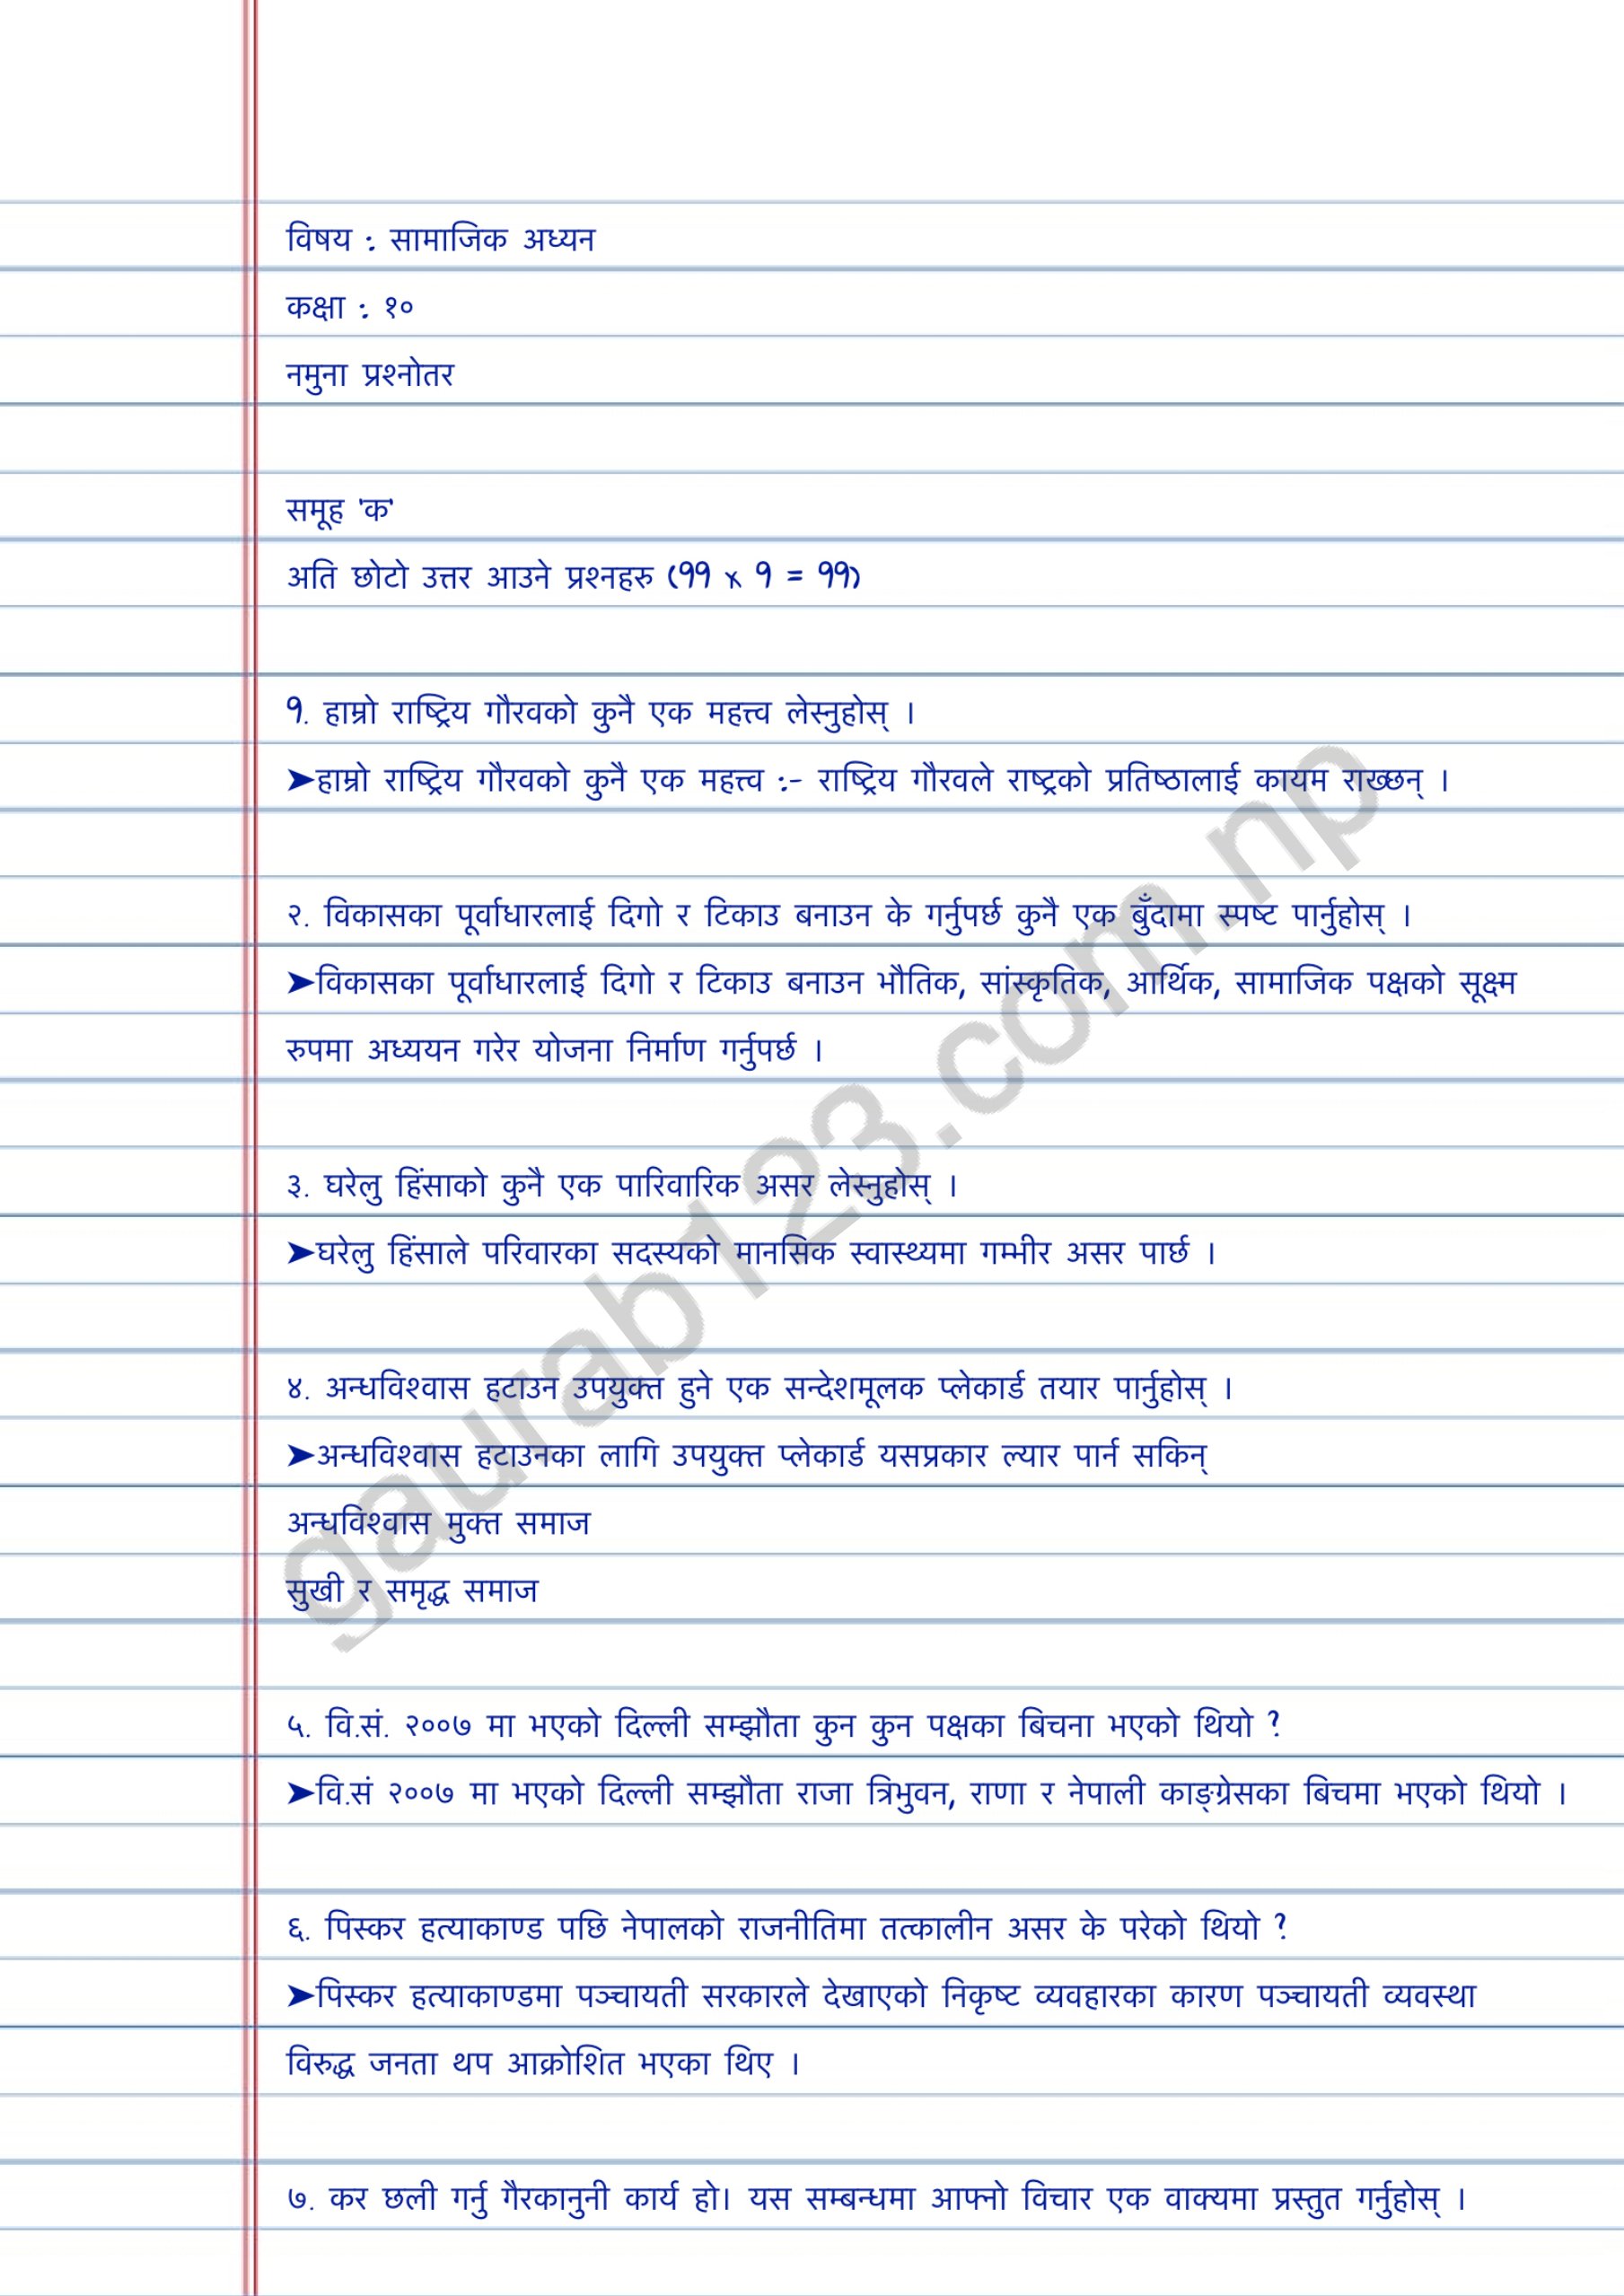 विषय : सामाजिक अध्यन
कक्षा : १०
नमुना प्रश्नोतर
समूह 'क'
अति छोटो उत्तर आउने प्रश्नहरु (११ x १ = ११)
१. हाम्रो राष्ट्रिय गौरवको कुनै एक महत्त्व लेस्नुहोस् ।
➤हाम्रो राष्ट्रिय गौरवको कुनै एक महत्त्व :- राष्ट्रिय गौरवले राष्ट्रको प्रतिष्ठालाई कायम राख्छन् ।
२. विकासका पूर्वाधारलाई दिगो र टिकाउ बनाउन के गर्नुपर्छ कुनै एक बुँदामा स्पष्ट पार्नुहोस् ।
➤विकासका पूर्वाधारलाई दिगो र टिकाउ बनाउन भौतिक, सांस्कृतिक, आर्थिक, सामाजिक पक्षको सूक्ष्म
रुपमा अध्ययन गरेर योजना निर्माण गर्नुपर्छ ।
३. घरेलु हिंसाको कुनै एक पारिवारिक असर लेस्नुहोस् ।
➤घरेलु हिंसाले परिवारका सदस्यको मानसिक स्वास्थ्यमा गम्भीर असर पार्छ ।
४. अन्धविश्वास हटाउन उपयुक्त हुने एक सन्देशमूलक प्लेकार्ड तयार पार्नुहोस् ।
➤अन्धविश्वास हटाउनका लागि उपयुक्त प्लेकार्ड यसप्रकार ल्यार पार्न सकिन्
अन्धविश्वास मुक्त समाज
सुखी र समृद्ध समाज
५. वि.सं. २००७ मा भएको दिल्ली सम्झौता कुन कुन पक्षका बिचना भएको थियो ?
➤वि.सं २००७ मा भएको दिल्ली सम्झौता राजा त्रिभुवन, राणा र नेपाली काङ्ग्रेसका बिचमा भएको थियो ।
६. पिस्कर हत्याकाण्ड पछि नेपालको राजनीतिमा तत्कालीन असर के परेको थियो ?
➤पिस्कर हत्याकाण्डमा पञ्चायती सरकारले देखाएको निकृष्ट व्यवहारका कारण पञ्चायती व्यवस्था
विरुद्ध जनता थप आक्रोशित भएका थिए ।
७. कर छली गर्नु गैरकानुनी कार्य हो। यस सम्बन्धमा आफ्नो विचार एक वाक्यमा प्रस्तुत गर्नुहोस् ।
gaurab123.com.np